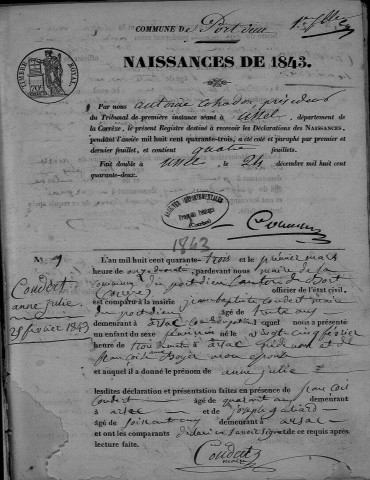 COMMUNE DE Port dieu
1er feuillet
NAISSANCES DE 1843.
TIMBRE ROYAL
Par nous antoine président
du Tribunal de première instance séant à ussel, département de
la Corrèze, le présent Registre destiné à recevoir les Déclarations des NAISSANCES,
pendant l'année mil huit cent quarante-trois; a été coté et paraphé par premier et
dernier feuillet, et contient quatre feuillets.
Fait double à ussel le 24 décembre mil huit cent
quarante-deux.
ARCHIVES DÉPARTEMENTALES
(Corrèze)
1843
No 1
Coudert
anne julie
25 février 1843
L'an mil huit cent quarante-trois et le premier mars
heure de pardevant nous maire de la
commune du port dieu canton de Bort
(Corrèze) officier de l'état civil,
est comparu à la mairie jean baptiste coudert maire
du port dieu âgé de trente ans
demeurant à arsac lequel nous a présenté
un enfant du sexe féminin né le vingt cinq février
heure de trois à arsac fille de lui et de
françoise Boyer mon épouse
et auquel il a donné le prénom de anne julie
lesdites déclaration et présentation faites en présence de françois
coudert âgé de quarante ans demeurant
à arsac et de joseph
âgé de soixante ans demeurant à arsac
et ont les comparants déclaré ne savoir signer de ce requis après
lecture faite.
Coudert
maire